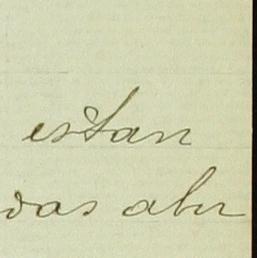 estan
das abr